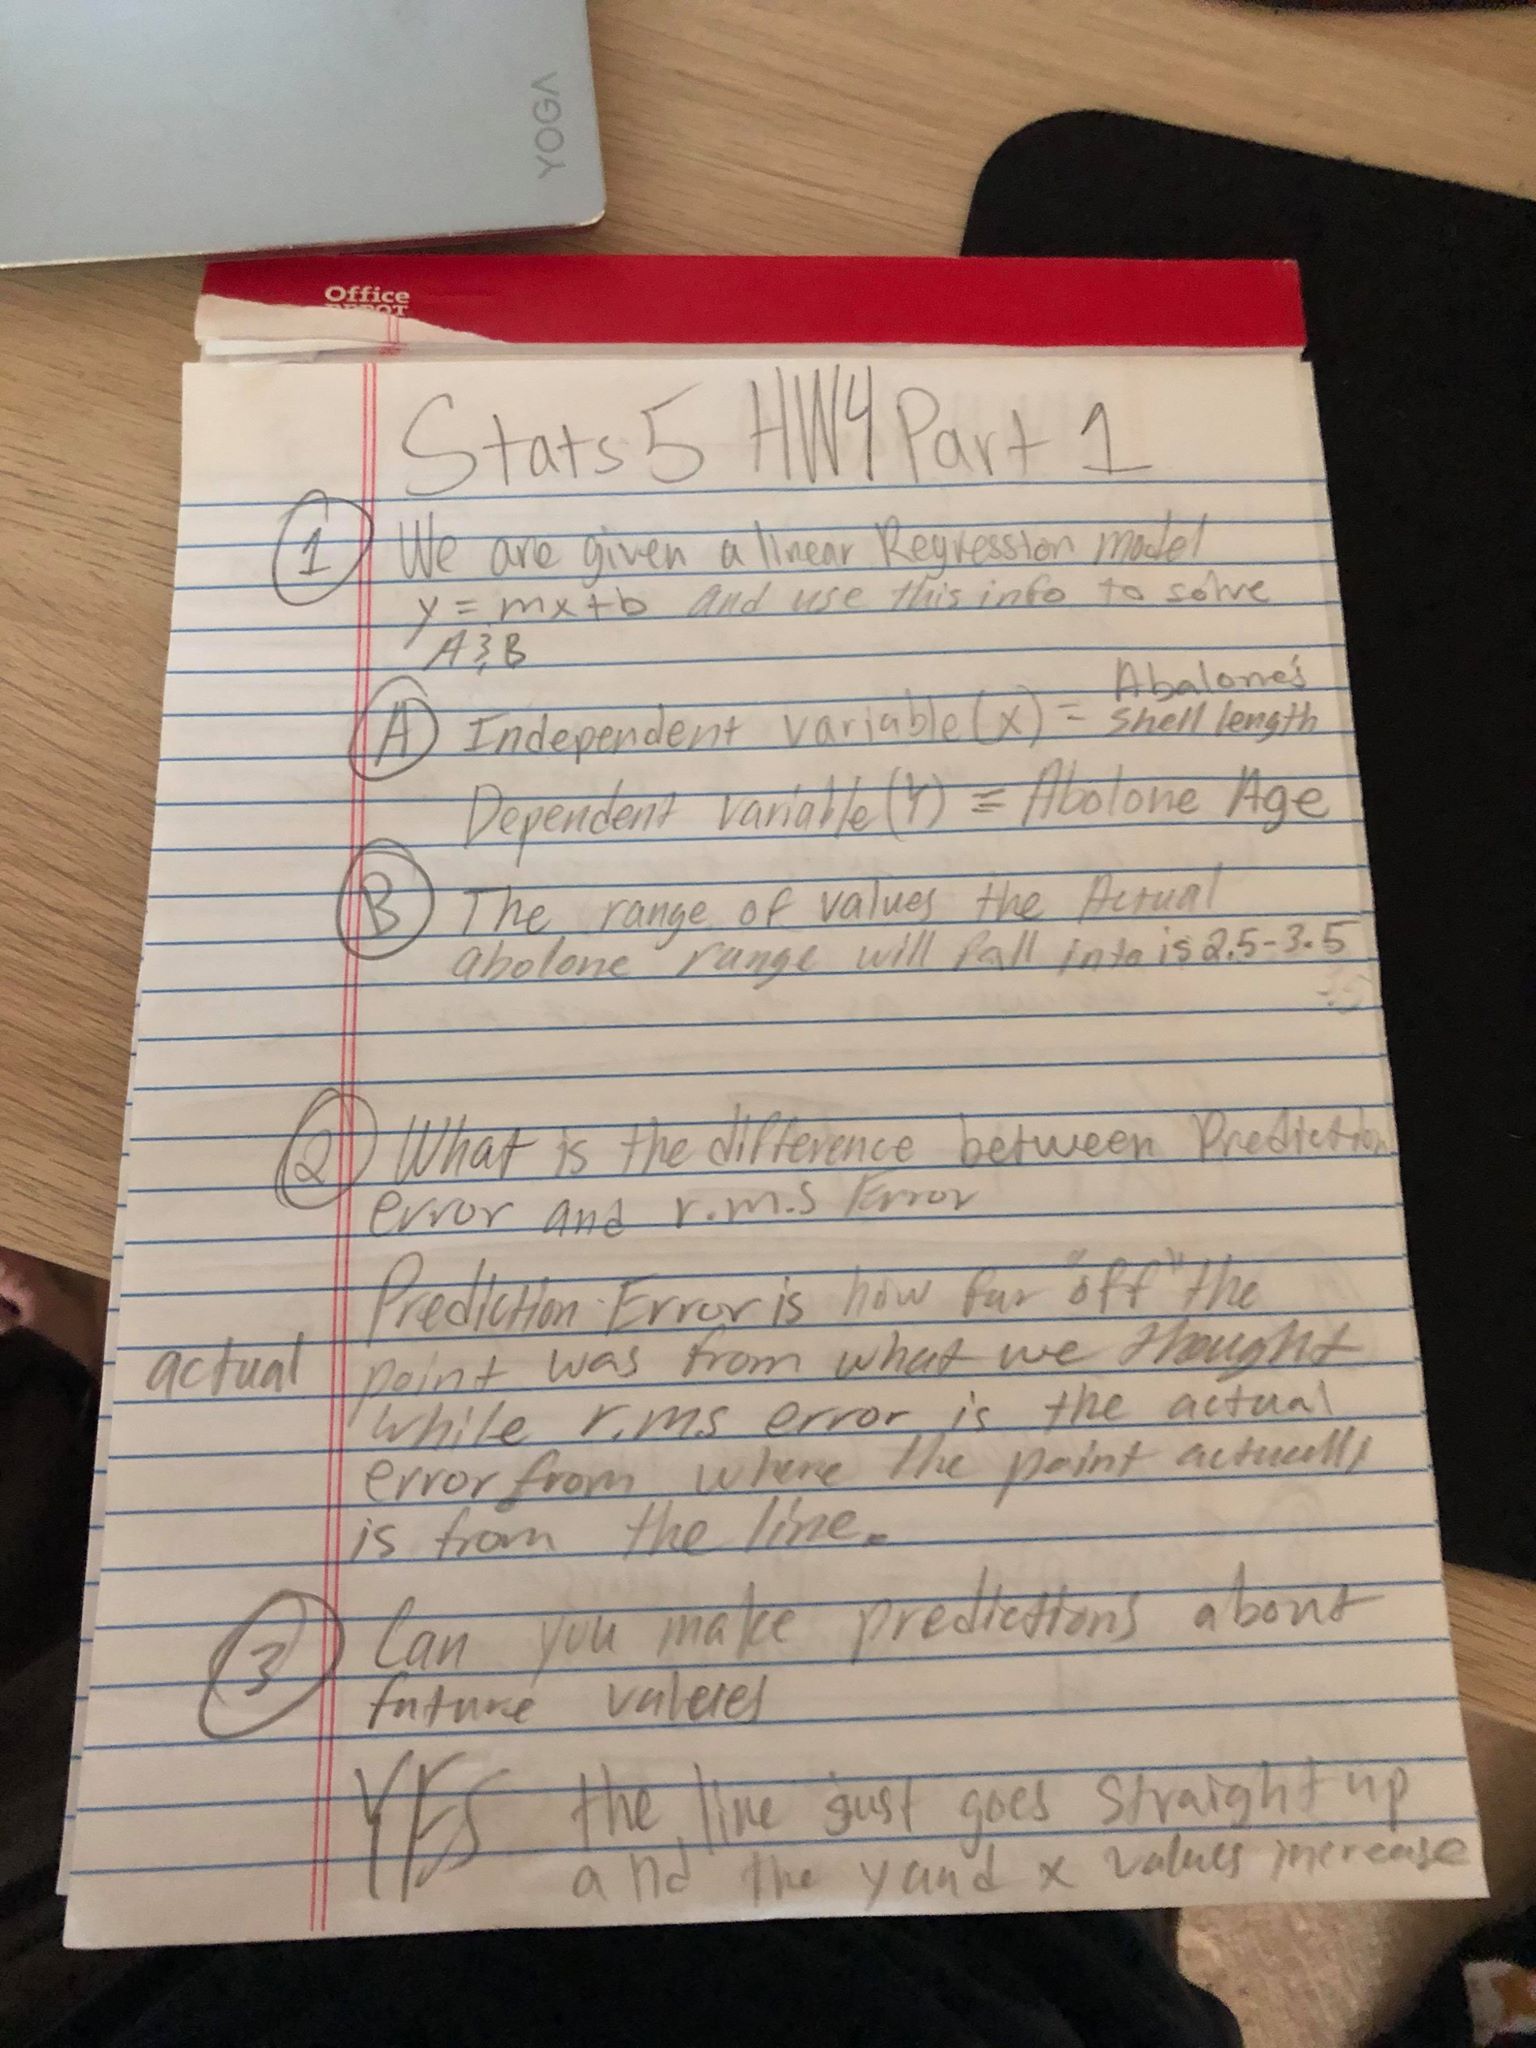 YOGA
Office
DEPOT
Stats 5 HW4 Part 1
1 We are given a linear Regression model
y = mx+b and use this info to solve
A & B
A Independent variable(x) = Abalone's
shell length
Dependent variable(Y) = Abolone Age
B The range of values the Actual
abolone range will fall into is 2.5-3.5
2 What is the difference between Prediction
error and r.m.s Error
Prediction Error is how far "off" the
actual point was from what we thought
while r.ms error is the actual
error from where the point actually
is from the line.
3 Can you make predictions about
future values
YES the line just goes straight up
and the y and x values increase